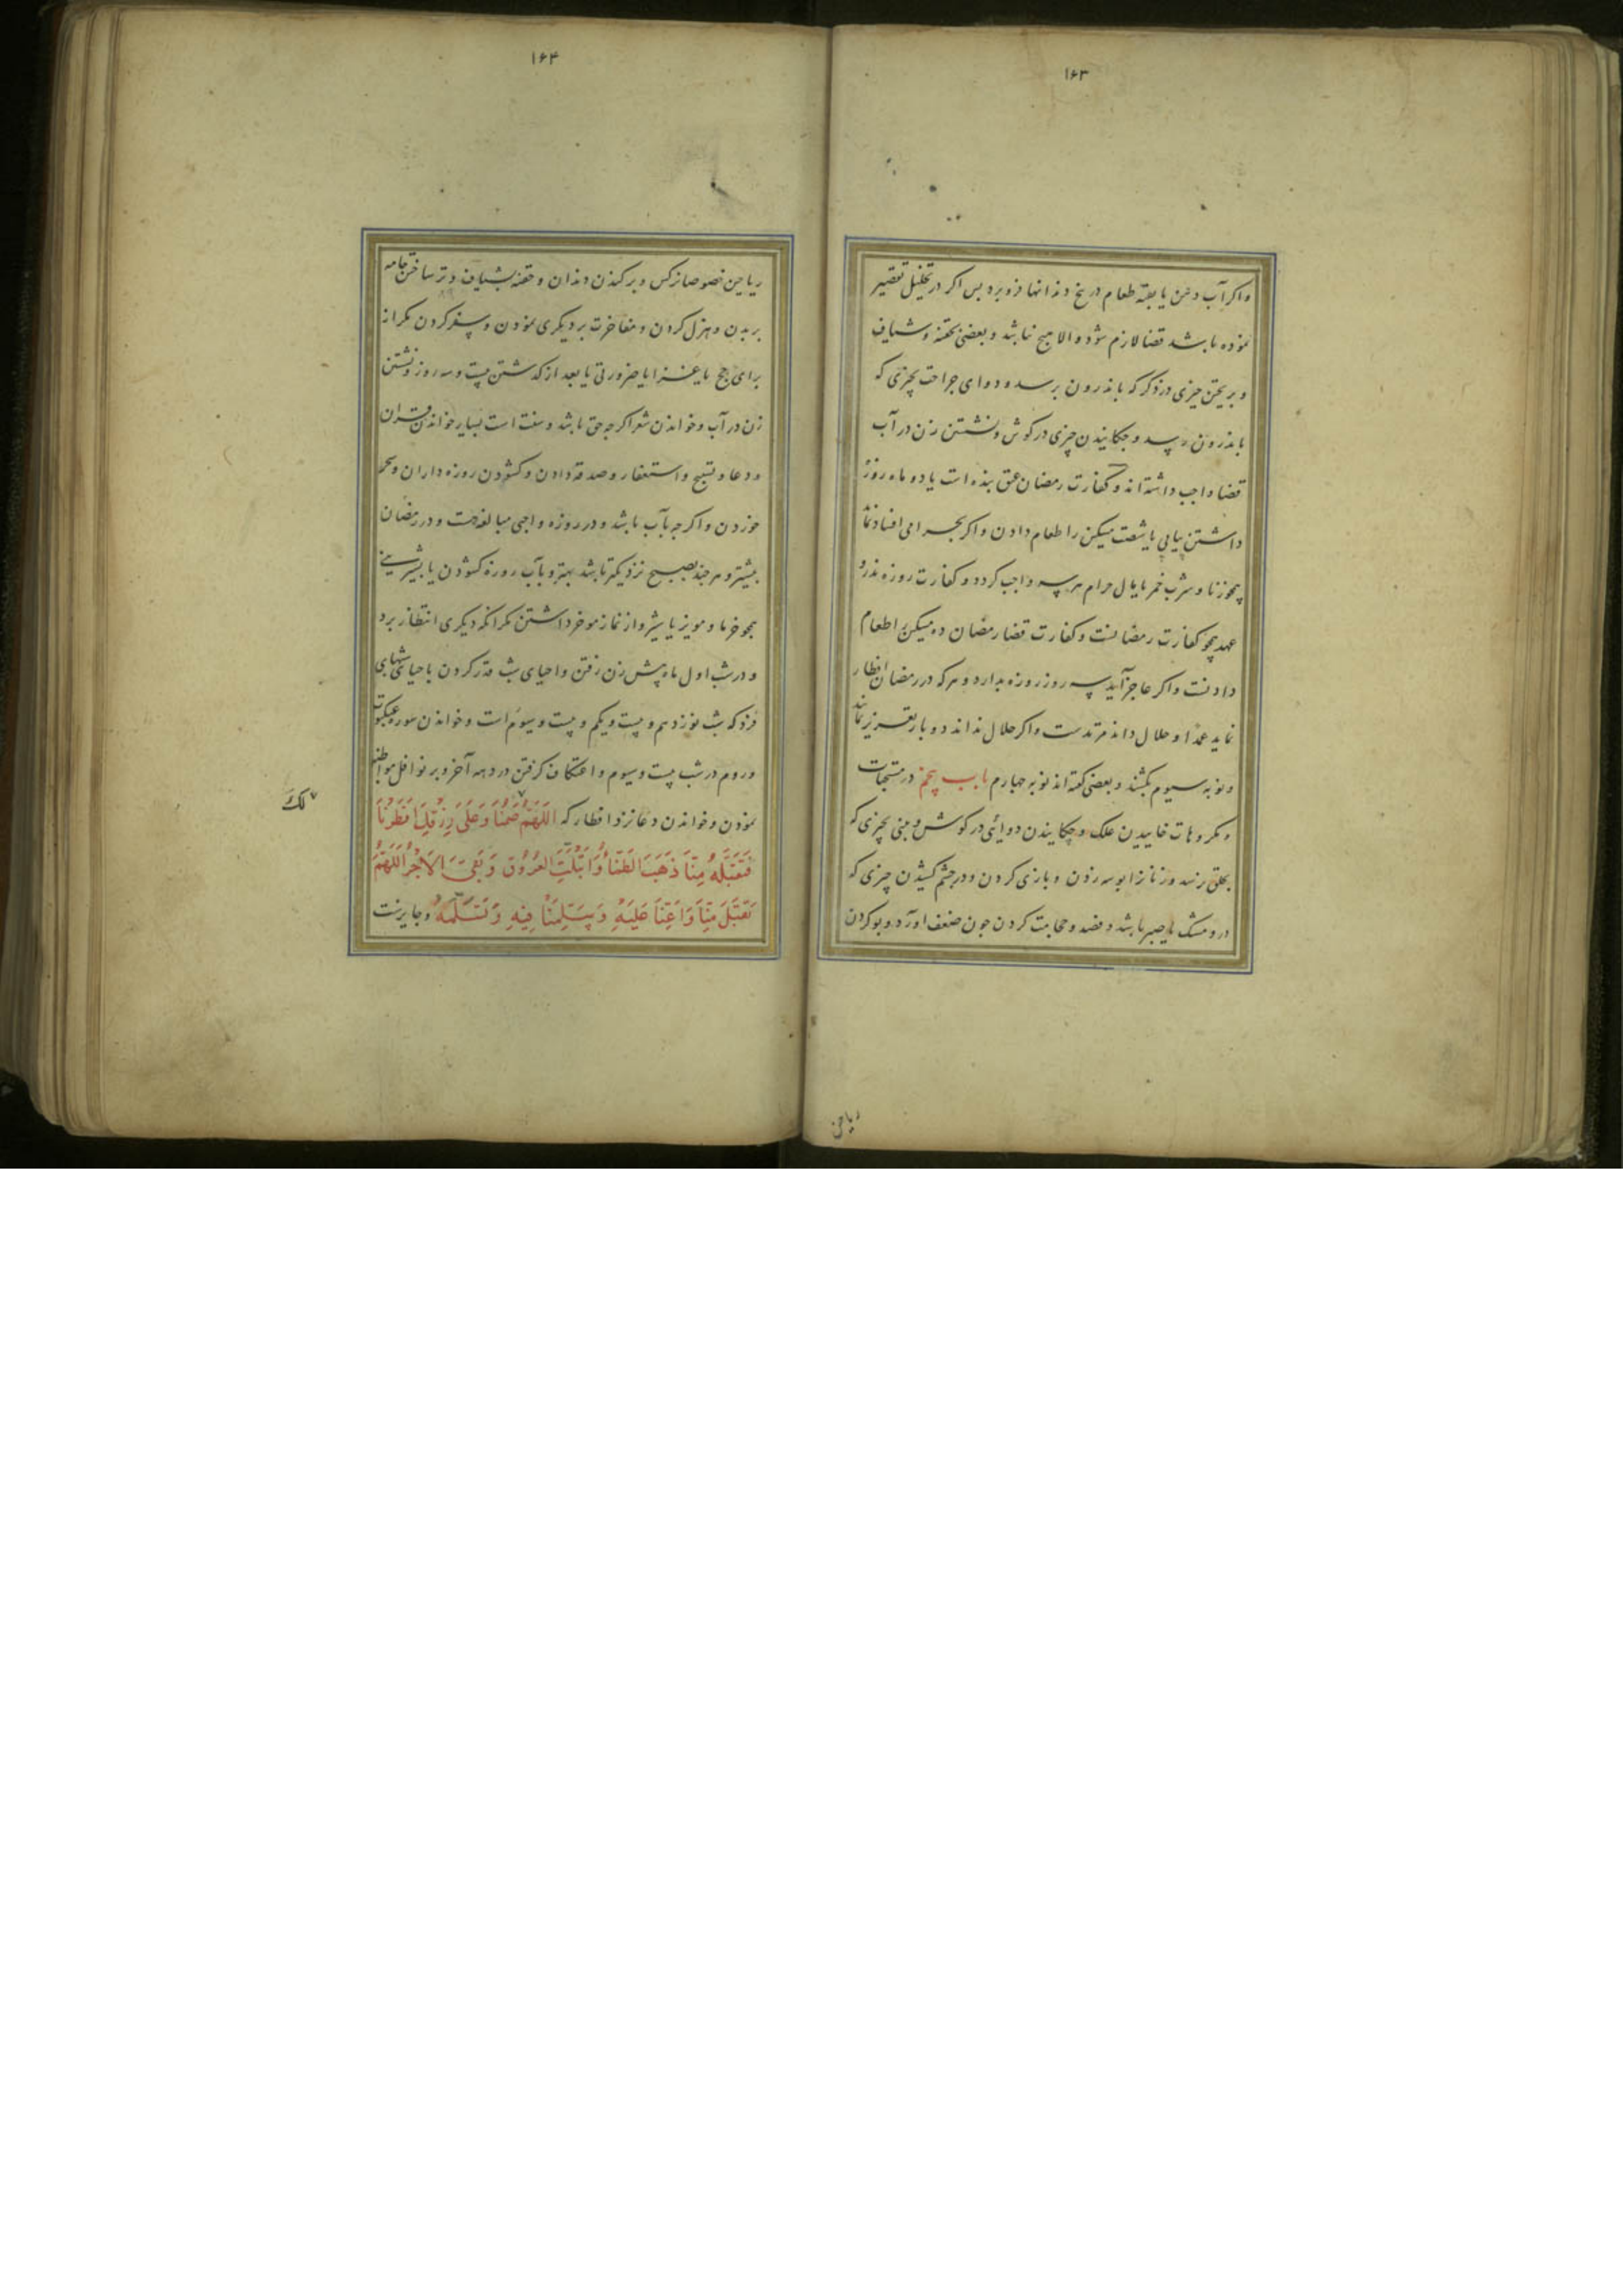 ۱۶۳
واکر آب دهن یا بقیه طعام در بیخ دندانها فرو برد بس اکر در تخلیل تقصیر
نموده باشد قضا لازم شود والا هیچ نباشد و بعضی بحقنه وشیاف
و بریختن چیزی در ذکر که باندرون برسد و دوای جراحت بچیزی که
باندرون رسد و چکانیدن چیزی در کوش ونشستن زن در آب
قضا واجب داشته‌اند و کفارت رمضان عتق بنده است یا دو ماه روزه
داشتن بیاپی یا شصت مسکین را طعام دادن و اکر بحرامی افساد نماید
همچو زنا و شرب خمر یا مال حرام هر سه واجب کردد و کفارت روزه نذر و
عهد همچو کفارت رمضانست و کفارت قضا رمضان ده مسکین را طعام
دادنست واکر عاجز آید سه روز روزه بدارد و هر که در رمضان افطار
نماید عمدا و حلال داند مرتدست واکر حلال نداند دو بار تعزیر نمایند
ونوبه سیوم بکشند و بعضی کفته‌اند نوبه چهارم باب پنجم در مستحبات
و مکروهات خاییدن علک و چکانیدن دوائی در کوش و بینی بچیزی که
بحلق نرسد و زنانرا بوسه زدن و بازی کردن و در چشم کشیدن چیزی که
درو مشک یا صبر باشد و فصد و حجامت کردن چون ضعف اورد و بو کردن
ریاحین
۱۶۴
ریاحین خصوصا نرکس و برکندن دندان و حقنه بشیاف و تر ساختن جامه
بر بدن و هزل کردن و مفاخرت بر دیکری نمودن و سفر کردن مکر از
برای حج یا غزا یا ضرورتی یا بعد از کذشتن بیست وسه روز ونشستن
زن در آب وخواندن شعر اکرچه حق باشد و سنت است بسیار خواندن قران
و دعا و تسبیح و استغفار و صدقه دادن و کشودن روزه داران وسحر
خوردن و اکرچه بآب باشد و در روزه واجبی مبالغه هست و در رمضان
بیشتر و هر چند بصبح نزدیکتر باشد بهتر و بآب روزه کشودن یا بشیرینی
همچو خرما و مویز یا بشیر و از نماز موخر داشتن مکر انکه دیکری انتظار برد
و در شب اول ماه پیش زن رفتن واحیای شب قدر کردن باحیای شبهای
فرد که شب نوزدهم و بیست و یکم و بیست وسیوم است وخواندن سوره عنکبوت
وروم در شب بیست وسیوم و اعتکاف کرفتن در دهه آخر و بر نوافل مواظبه
نمودن وخواندن دعا نزد افطار که اَللّهُمَّ صُمْنَا وَعَلَی رِزْقِكَ اَفْطَرْنَا
لَكَ
فَتَقَبَّلْهُ مِنَّا ذَهَبَ الظَّمَأُ وَابْتَلَّتِ العُرُوقُ وَبَقِیَ الاَجْرُ اَللّهُمَّ
تَقَبَّلْ مِنَّا وَاَعِنَّا عَلَیْهِ وَسَلِّمْنَا فِیهِ وَتَسَلَّمْهُ وجایزست